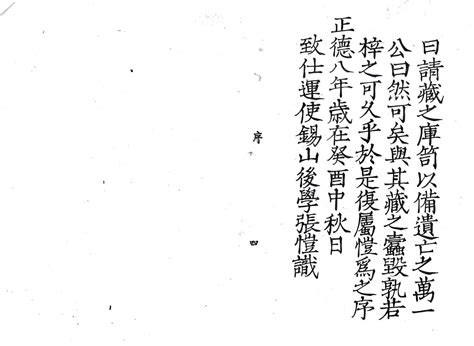 曰請藏之庫笥以備遺亡之萬一
公曰然可矣與其藏之蠹毀孰若
梓之可久乎於是復屬愷爲之序
正德八年歲在癸酉中秋日
致仕運使錫山後學張愷識
序
四